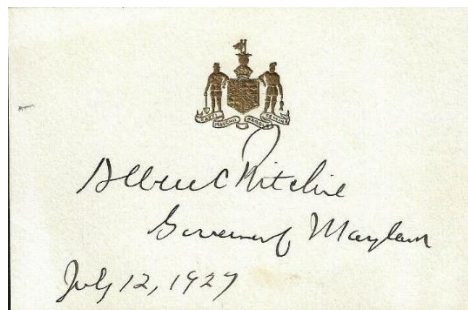 Albert C Ritchie
Governor of Maryland
July 12, 1927